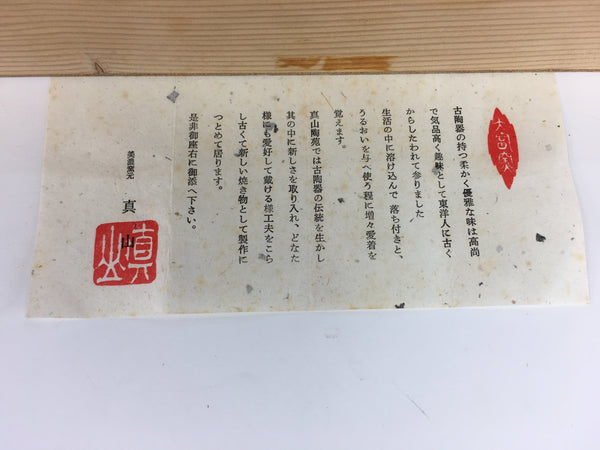 大宮窯
古陶器の持つ柔かく優雅な味は高尚
で気品高く趣味として東洋人に古く
からしたわれて参りました
生活の中に溶け込んで落ち付きと、
うるおいを与へ使う程に増々愛着を
覚えます。
真山陶苑では古陶器の伝統を生かし
其の中に新しさを取り入れ、どなた
様にも愛好して戴ける様工夫をこら
し古くて新しい焼き物として製作に
つとめて居ります。
是非御座右に御添へ下さい。
美濃窯元 真山
真山